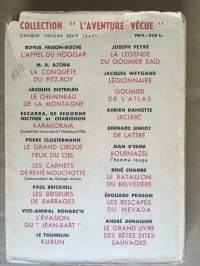 COLLECTION "L'AVENTURE VÉCUE"
CHAQUE VOLUME RELIÉ PRIX : 800 fr.
ROGER FRISON-ROCHE
L'APPEL DU HOGGAR
M. A. AZÉMA
LA CONQUÊTE
DU FITZ-ROY
JACQUES DIETERLEN
LE CHEMINEAU
DE LA MONTAGNE
ESCARRA, DE SEGOGNE
NELTNER et CHARIGNON
KARAKORAM
Expédition française à l'Himalaya 1936
PIERRE CLOSTERMANN
LE GRAND CIRQUE
FEUX DU CIEL
LES CARNETS
DE RENÉ MOUCHOTTE
Commandant du Groupe Alsace
PAUL BRICKHILL
LES BRISEURS
DE BARRAGES
VICE-AMIRAL RONARC'H
L'ÉVASION
DU "JEAN-BART"
LE TOUMELIN
KURUN
JOSEPH PEYRÉ
LA LÉGENDE
DU GOUMIER SAÏD
JACQUES WEYGAND
LÉGIONNAIRE
GOUMIER
DE L'ATLAS
ADRIEN DANSETTE
LECLERC
BERNARD SIMIOT
DE LATTRE
JEAN D'ESME
BOURNAZEL
l'homme rouge
RENÉ CHAMBE
LE BATAILLON
DU BELVÉDÈRE
ÉDOUARD PEISSON
LES RESCAPÉS
DU NEVADA
ANDRÉ DEMAISON
LE GRAND LIVRE
DES BÊTES DITES
SAUVAGES